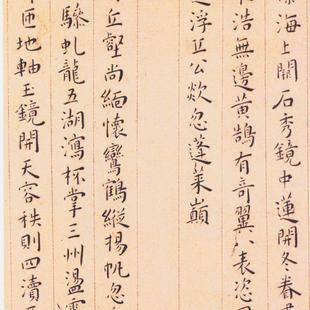 海上闢石秀鏡中蓮開冬眷
浩無邊黃鵠有奇翼八表恣
遊浮丘公欻忽蓬萊巔
丘壑尚緬懷鸞鶴縱揚帆忽
驂虬龍五湖瀉杯掌三州溫
匝地軸玉鏡開天容秩則四瀆